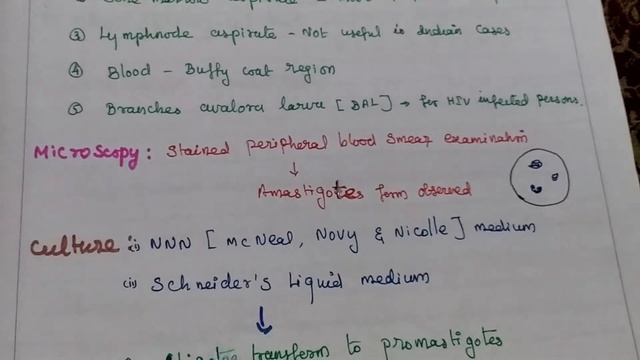 ③ Lymphnode aspirate - Not useful in Indian Cases
④ Blood - Buffy coat region
⑤ Branches avalora larva [BAL] → for HIV infected persons.
Microscopy: Stained peripheral blood smear examination
↓
Amastigotes form observed
Culture: (i) NNN [McNeal, Novy & Nicolle] medium
(ii) Schneider's Liquid medium
↓
transform to promastigotes